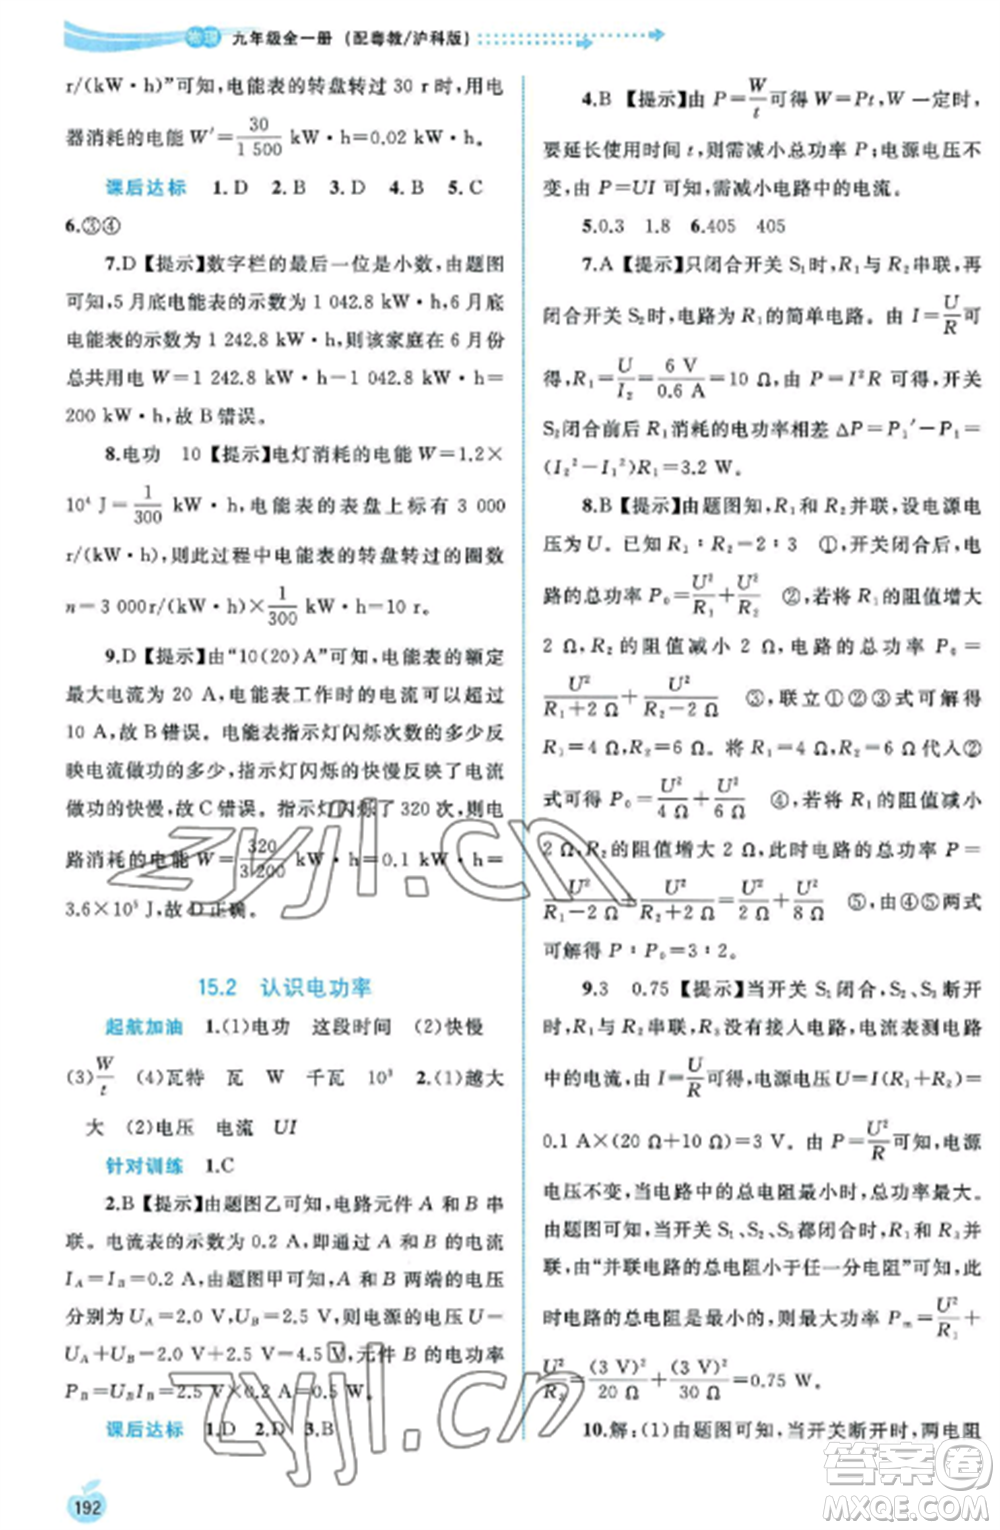 物理 九年级全一册 (配粤教/沪科版)
r/(kW·h)”可知,电能表的转盘转过 30 r时,用电
器消耗的电能 W′=30/1 500 kW·h=0.02 kW·h。
课后达标 1.D 2.B 3.D 4.B 5.C
6.③④
7.D【提示】数字栏的最后一位是小数,由题图
可知,5月底电能表的示数为 1 042.8 kW·h,6月
底电能表的示数为 1 242.8 kW·h,则该家庭在 6 月份
总共用电 W=1 242.8 kW·h-1 042.8 kW·h=
200 kW·h,故 B 错误。
8.电功 10【提示】电灯消耗的电能 W=1.2×
10⁴ J=1/300 kW·h,电能表的表盘上标有 3 000
r/(kW·h),则此过程中电能表的转盘转过的圈数
n=3 000r/(kW·h)×1/300 kW·h=10 r。
9.D【提示】由“10(20)A”可知,电能表的额定
最大电流为 20 A,电能表工作时的电流可以超过
10 A,故 B 错误。电能表指示灯闪烁次数的多少反
映电流做功的多少,指示灯闪烁的快慢反映了电流
做功的快慢,故 C 错误。指示灯闪烁了 320 次,则电
路消耗的电能 W=320/3 200 kW·h=0.1 kW·h=
3.6×10⁵ J,故 D 正确。
15.2 认识电功率
起航加油 1.(1)电功 这段时间 (2)快慢
(3)W/t (4)瓦特 瓦 W 千瓦 10³ 2.(1)越大
大 (2)电压 电流 UI
针对训练 1.C
2.B【提示】由题图乙可知,电路元件 A 和 B 串
联。电流表的示数为 0.2 A,即通过 A 和 B 的电流
I_A=I_B=0.2 A,由题图甲可知,A 和 B 两端的电压
分别为 U_A=2.0 V,U_B=2.5 V,则电源的电压 U=
U_A+U_B=2.0 V+2.5 V=4.5 V,元件 B 的电功率
P_B=U_B I_B=2.5 V×0.2 A=0.5 W。
课后达标 1.D 2.D 3.B
192
4.B【提示】由 P=W/t可得 W=Pt,W 一定时,
要延长使用时间 t,则需减小总功率 P;电源电压不
变,由 P=UI 可知,需减小电路中的电流。
5.0.3 1.8 6.405 405
7.A【提示】只闭合开关 S₁时,R₁与 R₂串联,再
闭合开关 S₂时,电路为 R₁的简单电路。由 I=U/R可
得,R₁=U/I₂=6 V/0.6 A=10 Ω,由 P=I²R 可得,开关
S₂闭合前后 R₁消耗的电功率相差 ΔP=P₁′-P₁=
(I₂²-I₁²)R₁=3.2 W。
8.B【提示】由题图知,R₁和 R₂并联,设电源电
压为 U。已知 R₁∶R₂=2∶3 ①,开关闭合后,电
路的总功率 P₀=U²/R₁+U²/R₂ ②,若将 R₁的阻值增大
2 Ω,R₂的阻值减小 2 Ω,电路的总功率 P₀=
U²/(R₁+2 Ω)+U²/(R₂-2 Ω) ③,联立①②③式可解得
R₁=4 Ω,R₂=6 Ω。将 R₁=4 Ω、R₂=6 Ω代入②
式可得 P₀=U²/4 Ω+U²/6 Ω ④,若将 R₁的阻值减小
2 Ω,R₂的阻值增大 2 Ω,此时电路的总功率 P=
U²/(R₁-2 Ω)+U²/(R₂+2 Ω)=U²/2 Ω+U²/8 Ω ⑤,由④⑤两式
可解得 P∶P₀=3∶2。
9.3 0.75【提示】当开关 S₁闭合,S₂、S₃断开
时,R₁与 R₂串联,R₃没有接入电路,电流表测电路
中的电流,由 I=U/R可得,电源电压 U=I(R₁+R₂)=
0.1 A×(20 Ω+10 Ω)=3 V。由 P=U²/R可知,电源
电压不变,当电路中的总电阻最小时,总功率最大。
由题图可知,当开关 S₁、S₂、S₃都闭合时,R₁和 R₃并
联,由“并联电路的总电阻小于任一分电阻”可知,此
时电路的总电阻是最小的,则最大功率 P_m=U²/R₁+
U²/R₃=(3 V)²/20 Ω+(3 V)²/30 Ω=0.75 W。
10.解:(1)由题图可知,当开关断开时,两电阻
zyjl.cn
zyjl.cn
答案圈
MXQE.COM